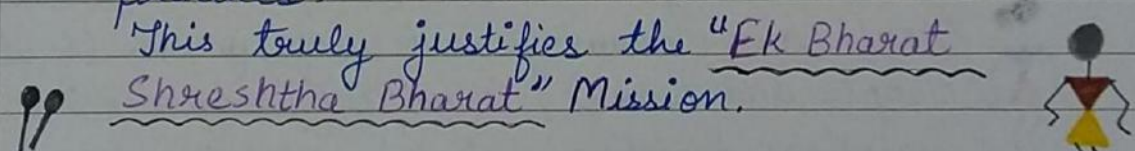 This truly justifies the "Ek Bharat
Shreshtha Bharat" Mission.